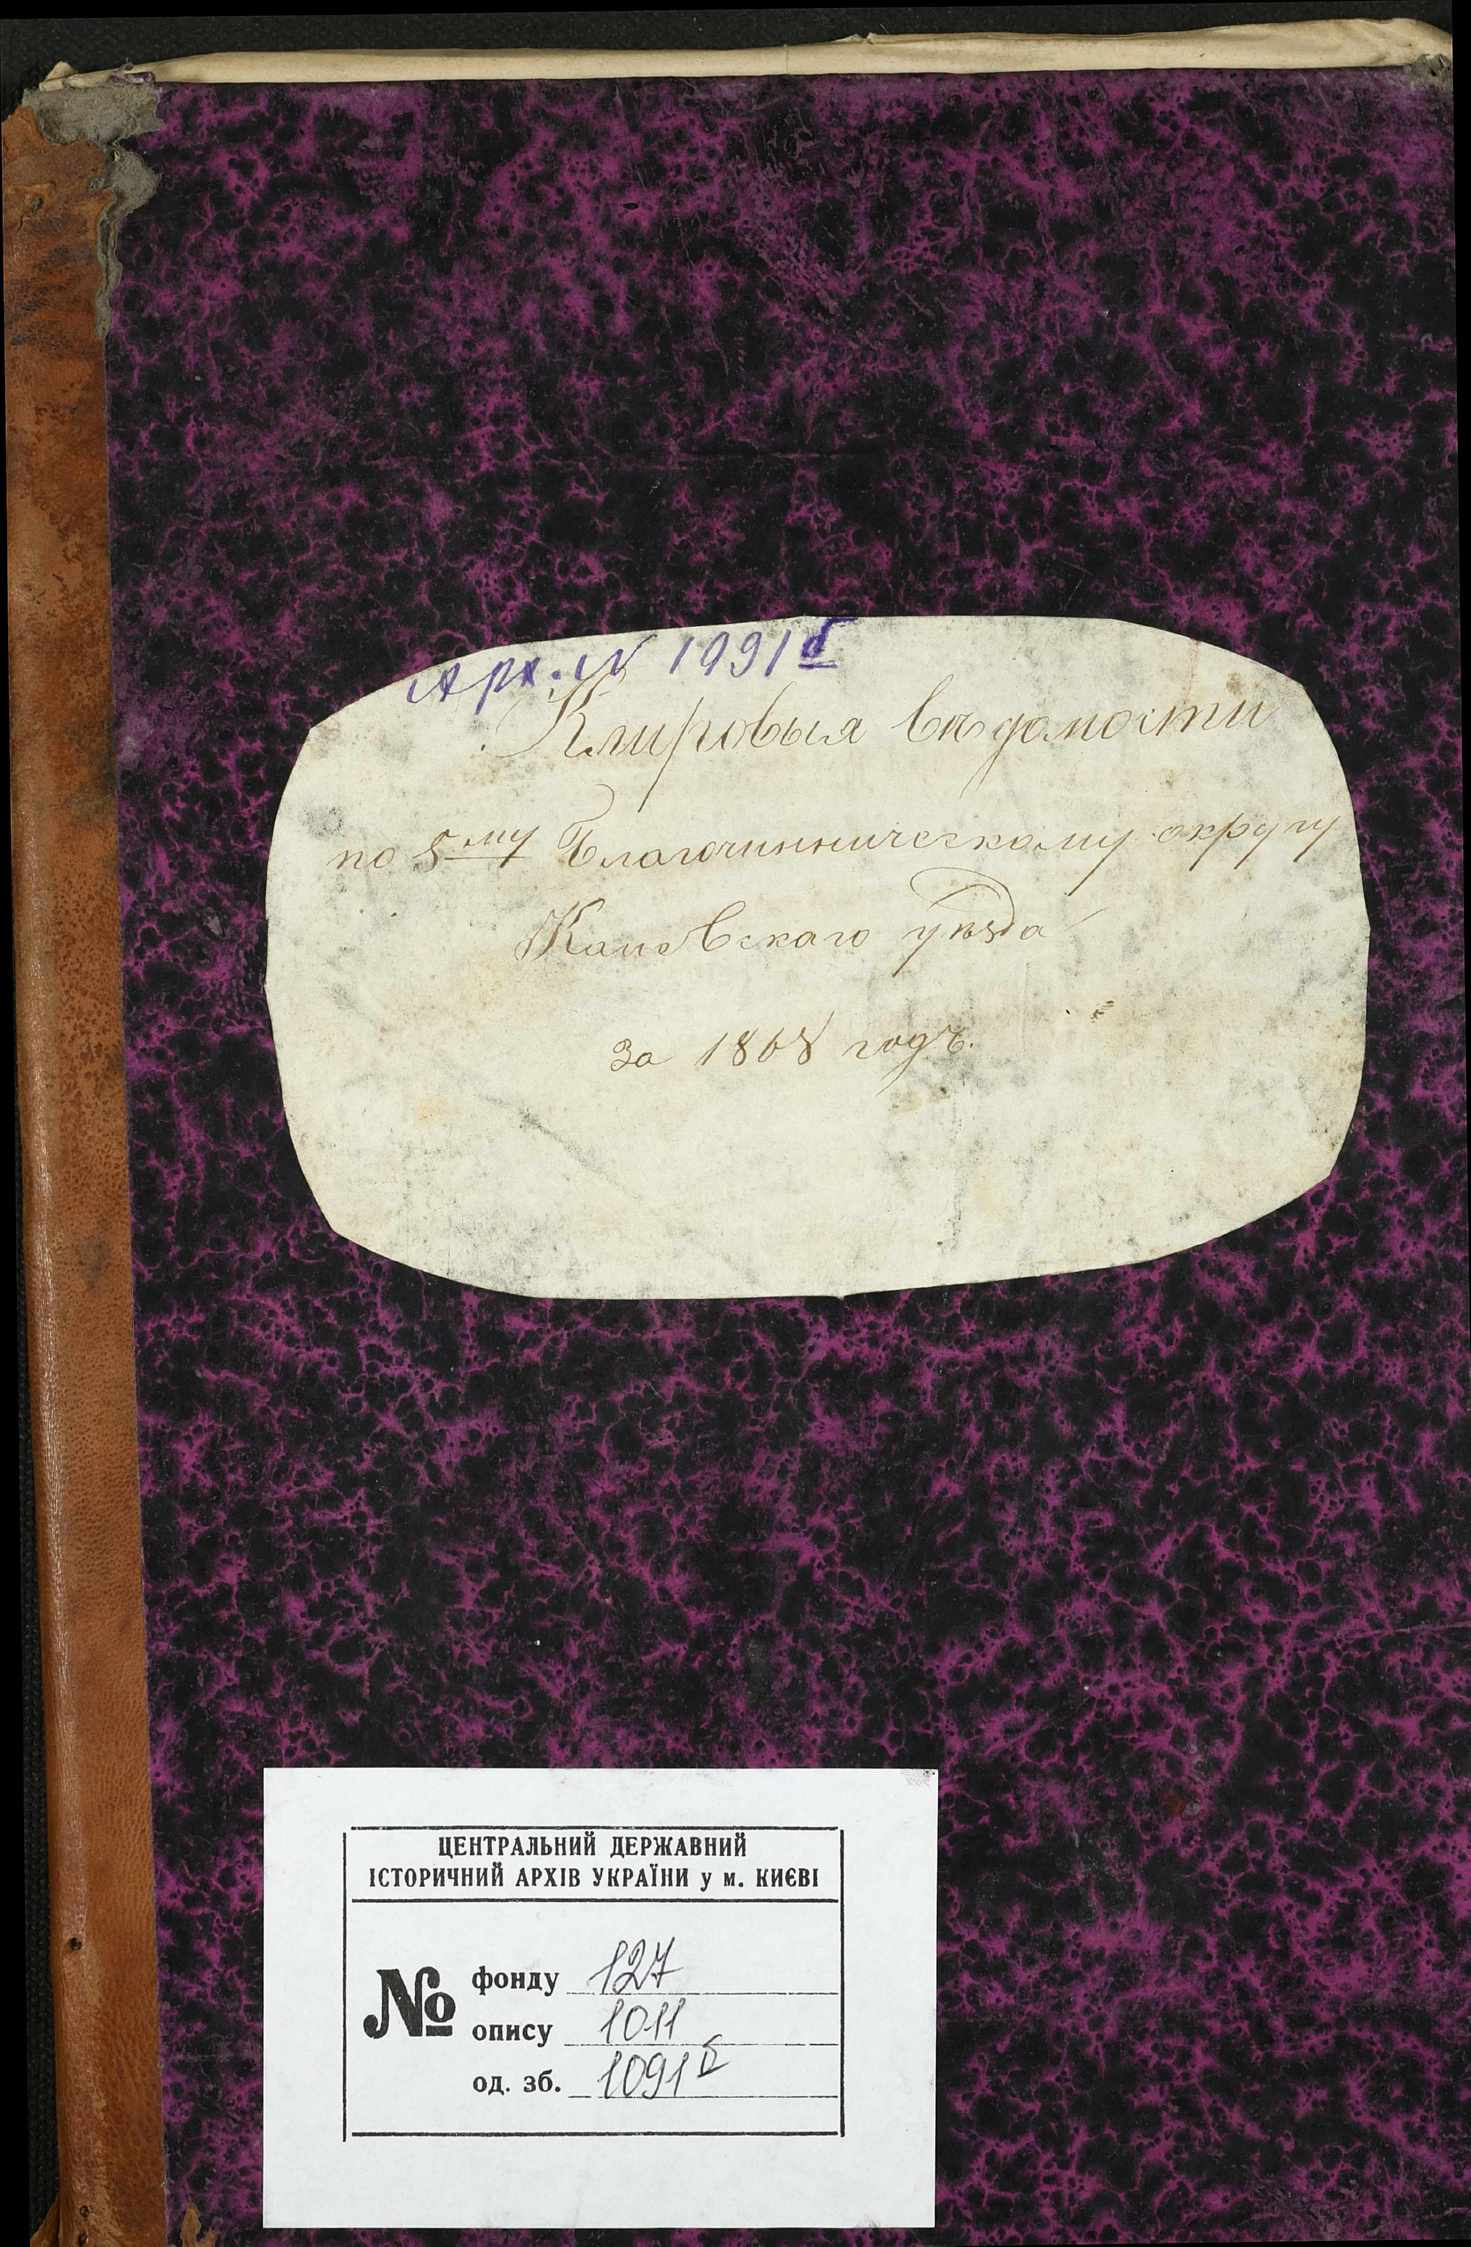 Арх. № 1091б
Клировыя вѣдомости
по 5му Благочинническому округу
Каневскаго уѣзда
за 1868 годъ.
ЦЕНТРАЛЬНИЙ ДЕРЖАВНИЙ
ІСТОРИЧНИЙ АРХІВ УКРАЇНИ у м. КИЄВІ
№ фонду 127
опису 1011
од. зб. 1091б